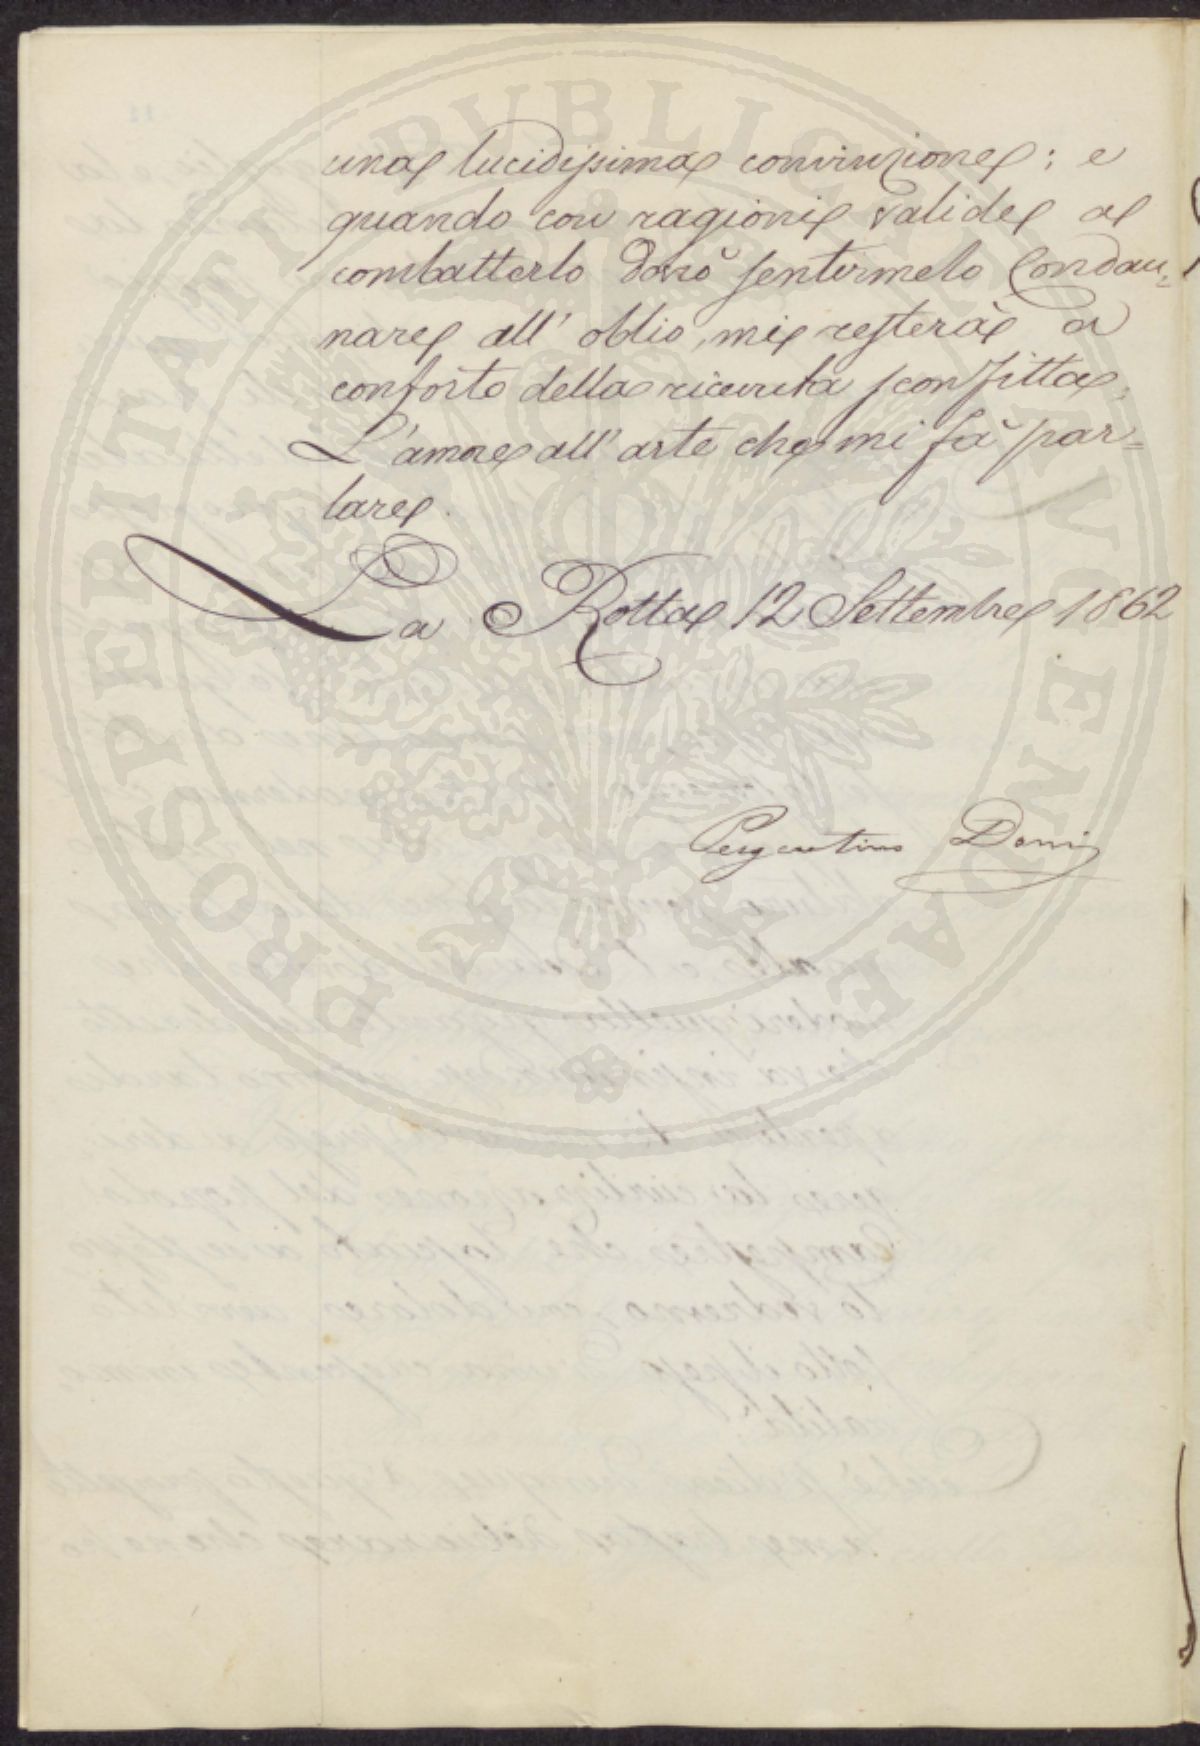 una lucidissima convinzione; e
quando con ragioni valide a
combatterlo dovrò sentirmelo Condan=
nare all' oblio, mi resterà a
conforto della ricevuta sconfitta,
L'amore all' arte che mi fà par=
lare.
La Rotta 12 Settembre 1862
Pergentino Doni
PROSPERITATI PUBLICAE AUGENDAE